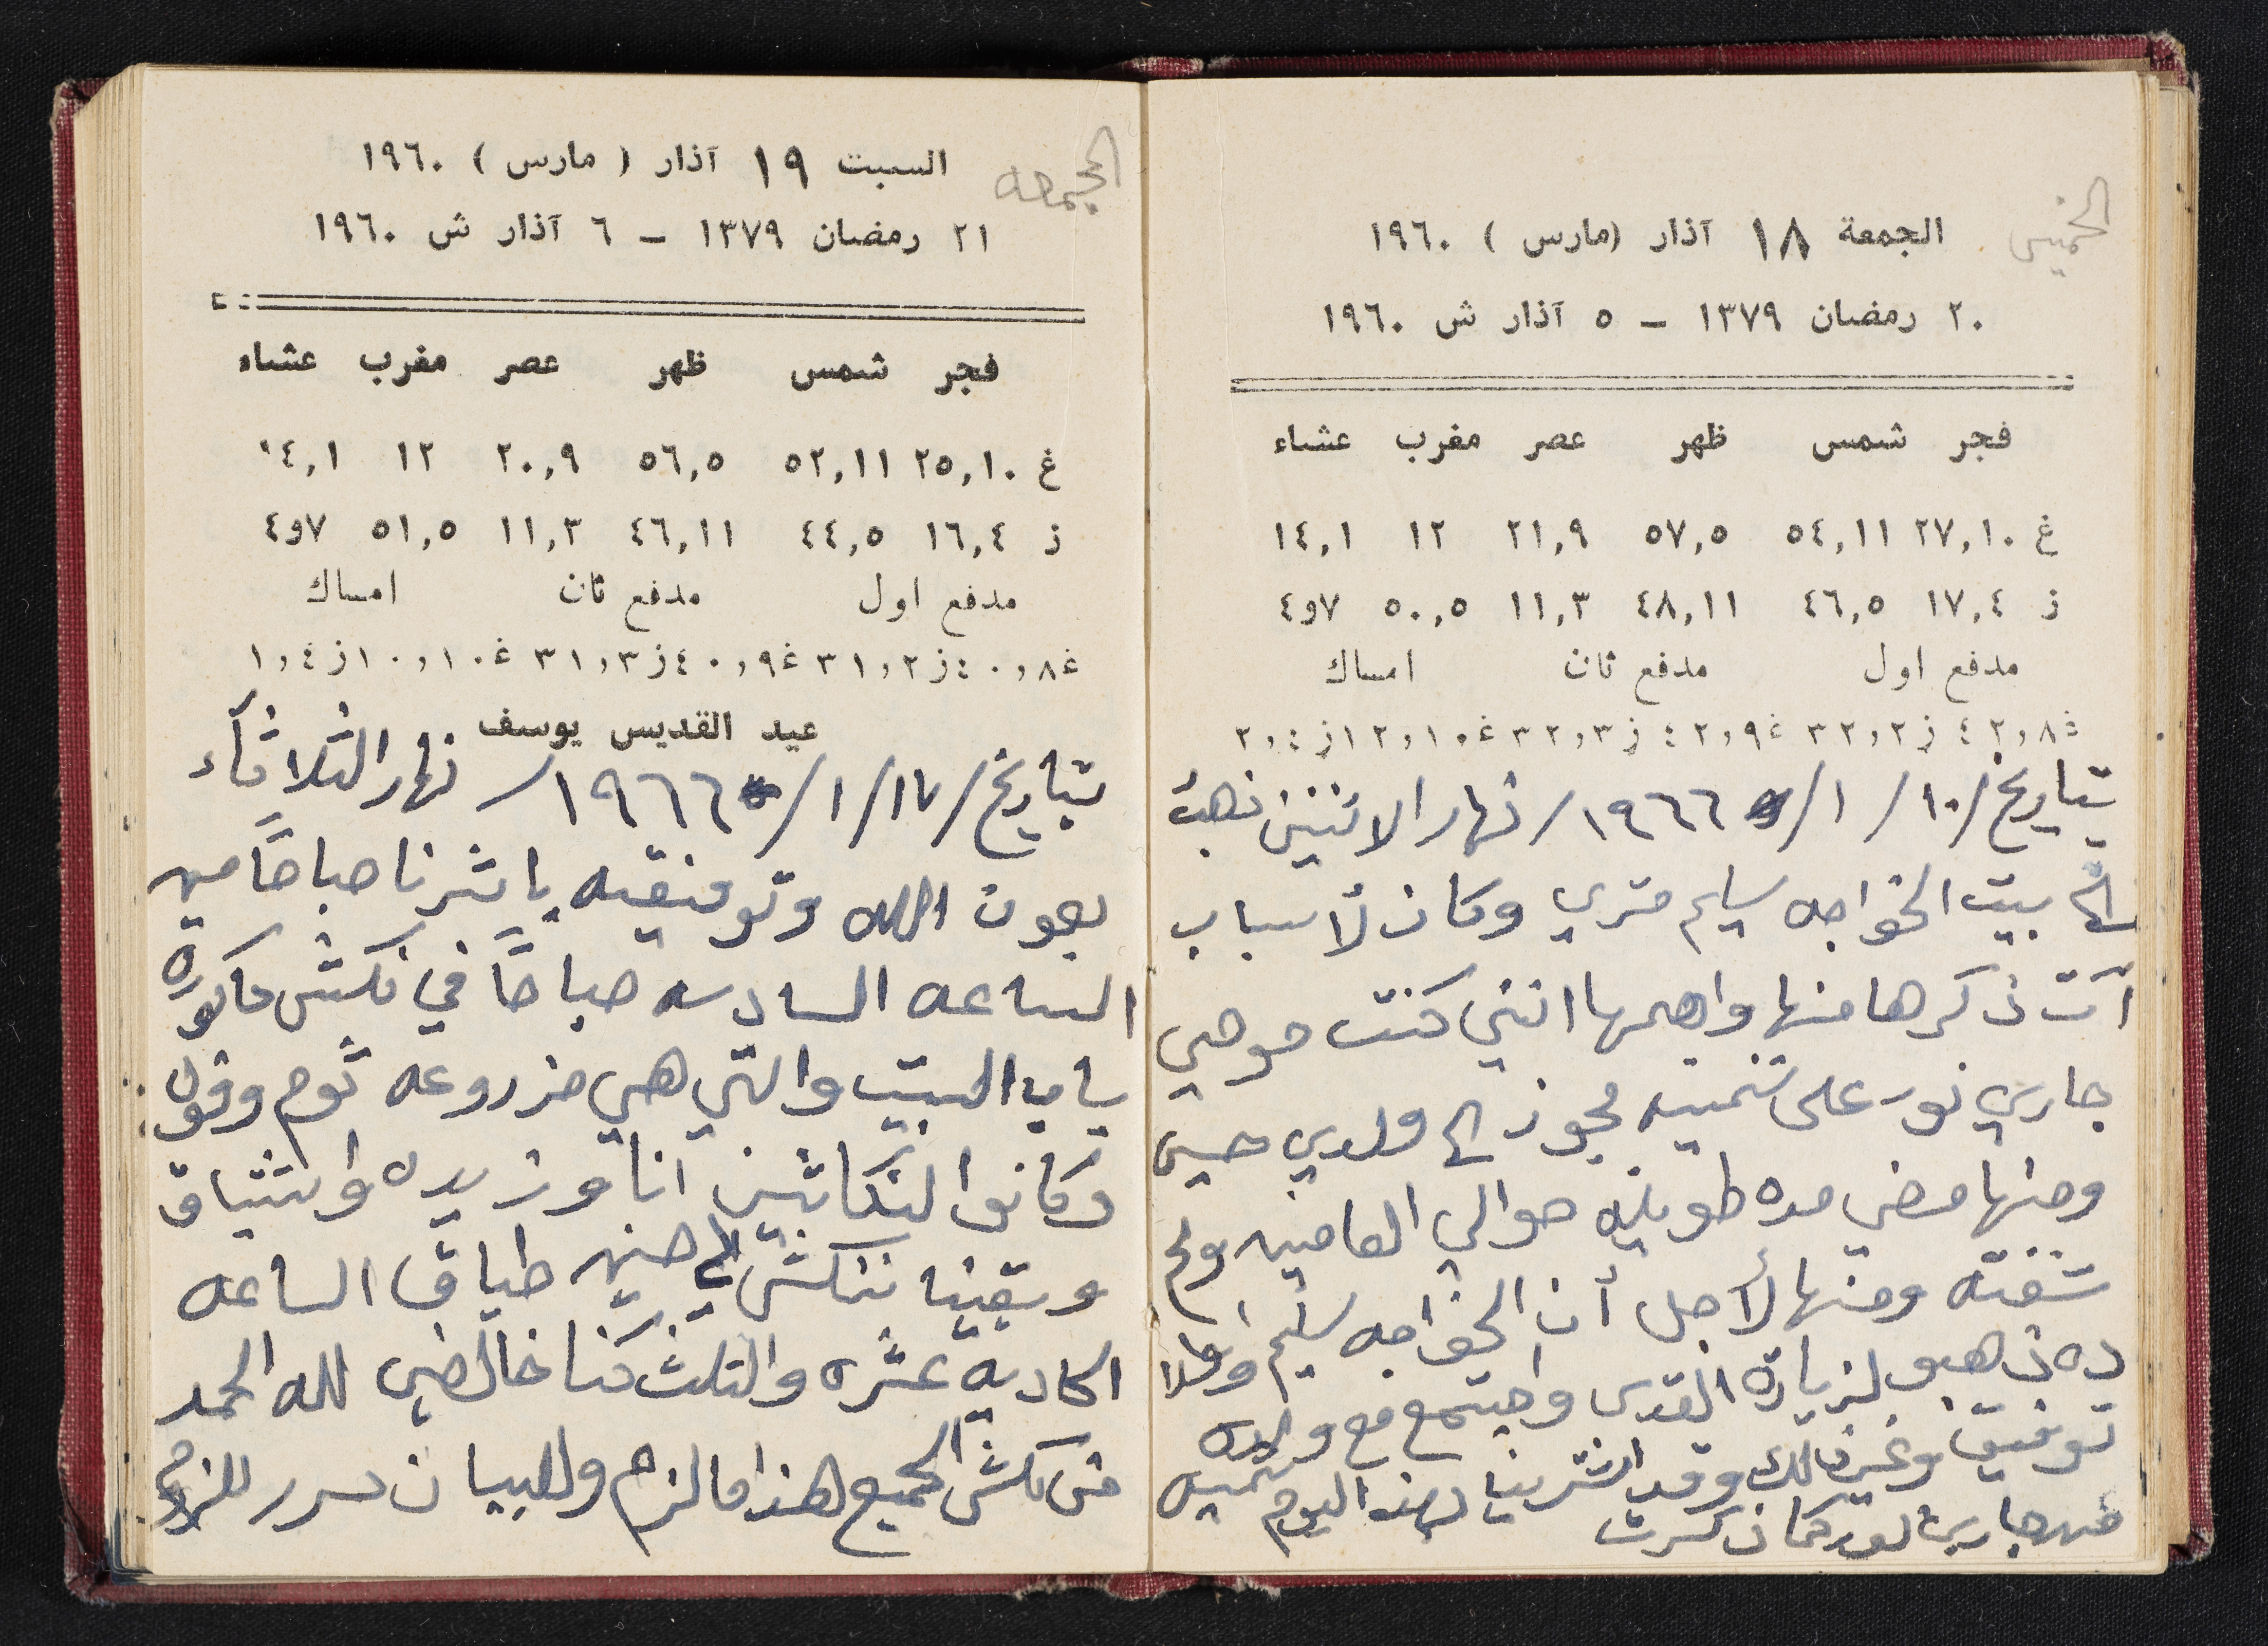 الخميس
الجمعة ١٨ آذار (مارس) ١٩٦٠
٢٠ رمضان ١٣٧٩ – ٥ آذار ش ١٩٦٠
فجر شمس ظهر عصر مغرب عشاء
غ ٢٧,١٠ ٥٤,١١ ٥٧,٥ ٢١,٩ ١٢ ١٤,١
ز ١٧,٤ ٤٦,٥ ٤٨,١١ ١١,٣ ٥٠,٥ ٧و٤
مدفع اول مدفع ثان امساك
غ ٤٢,٨ ز ٣٢,٢ غ ٤٢,٩ ز ٣٢,٣ غ ١٢,١٠ ز ٢,٤
بتاريخ /١٠/١/١٩٦٦/ نهار الاثنين ذهبت
الى بيت الخواجه سليم متري وكان لأسباب
آت ذكرها منها واهمها انني كنت موصي
جاري نور على تنميه مجوز الى ولدي حسين
ومنها مضي مده طويله حوالي العامين ولم
شفته ومنها لأجل أن الخواجه سليم واولا
ده ذهبو لزيارة القدس واجتمع مع ولده
توفيق وغير ذلك وقد اشترينا بهذا اليوم تنميه
من جاري نور كما ذكرت
الجمعه
السبت ١٩ آذار (مارس) ١٩٦٠
٢١ رمضان ١٣٧٩ – ٦ آذار ش ١٩٦٠
فجر شمس ظهر عصر مغرب عشاء
غ ٢٥,١٠ ٥٢,١١ ٥٦,٥ ٢٠,٩ ١٢ ١٤,١
ز ١٦,٤ ٤٤,٥ ٤٦,١١ ١١,٣ ٥١,٥ ٧و٤
مدفع اول مدفع ثان امساك
غ ٤٠,٨ ز ٣١,٢ غ ٤٠,٩ ز ٣١,٣ غ ١٠,١٠ ز ١,٤
عيد القديس يوسف
بتاريخ /١٧/١/١٩٦٦/ نهار الثلاثاء
بعون الله وتوفيقه باشرنا صباحاً من
الساعه السادسه صباحاً في نكش حاكورة
باب البيت والتي هي مزروعه ثوم وفول
وكانوا النكاشين انا وزيده واشتياق
وبقينا ننكش الى حين طباق الساعه
الحاديه عشره والثلث كنا خالصين لله الحمد
من نكش الجميع هذا ما لزم وللبيان حرر للزوم